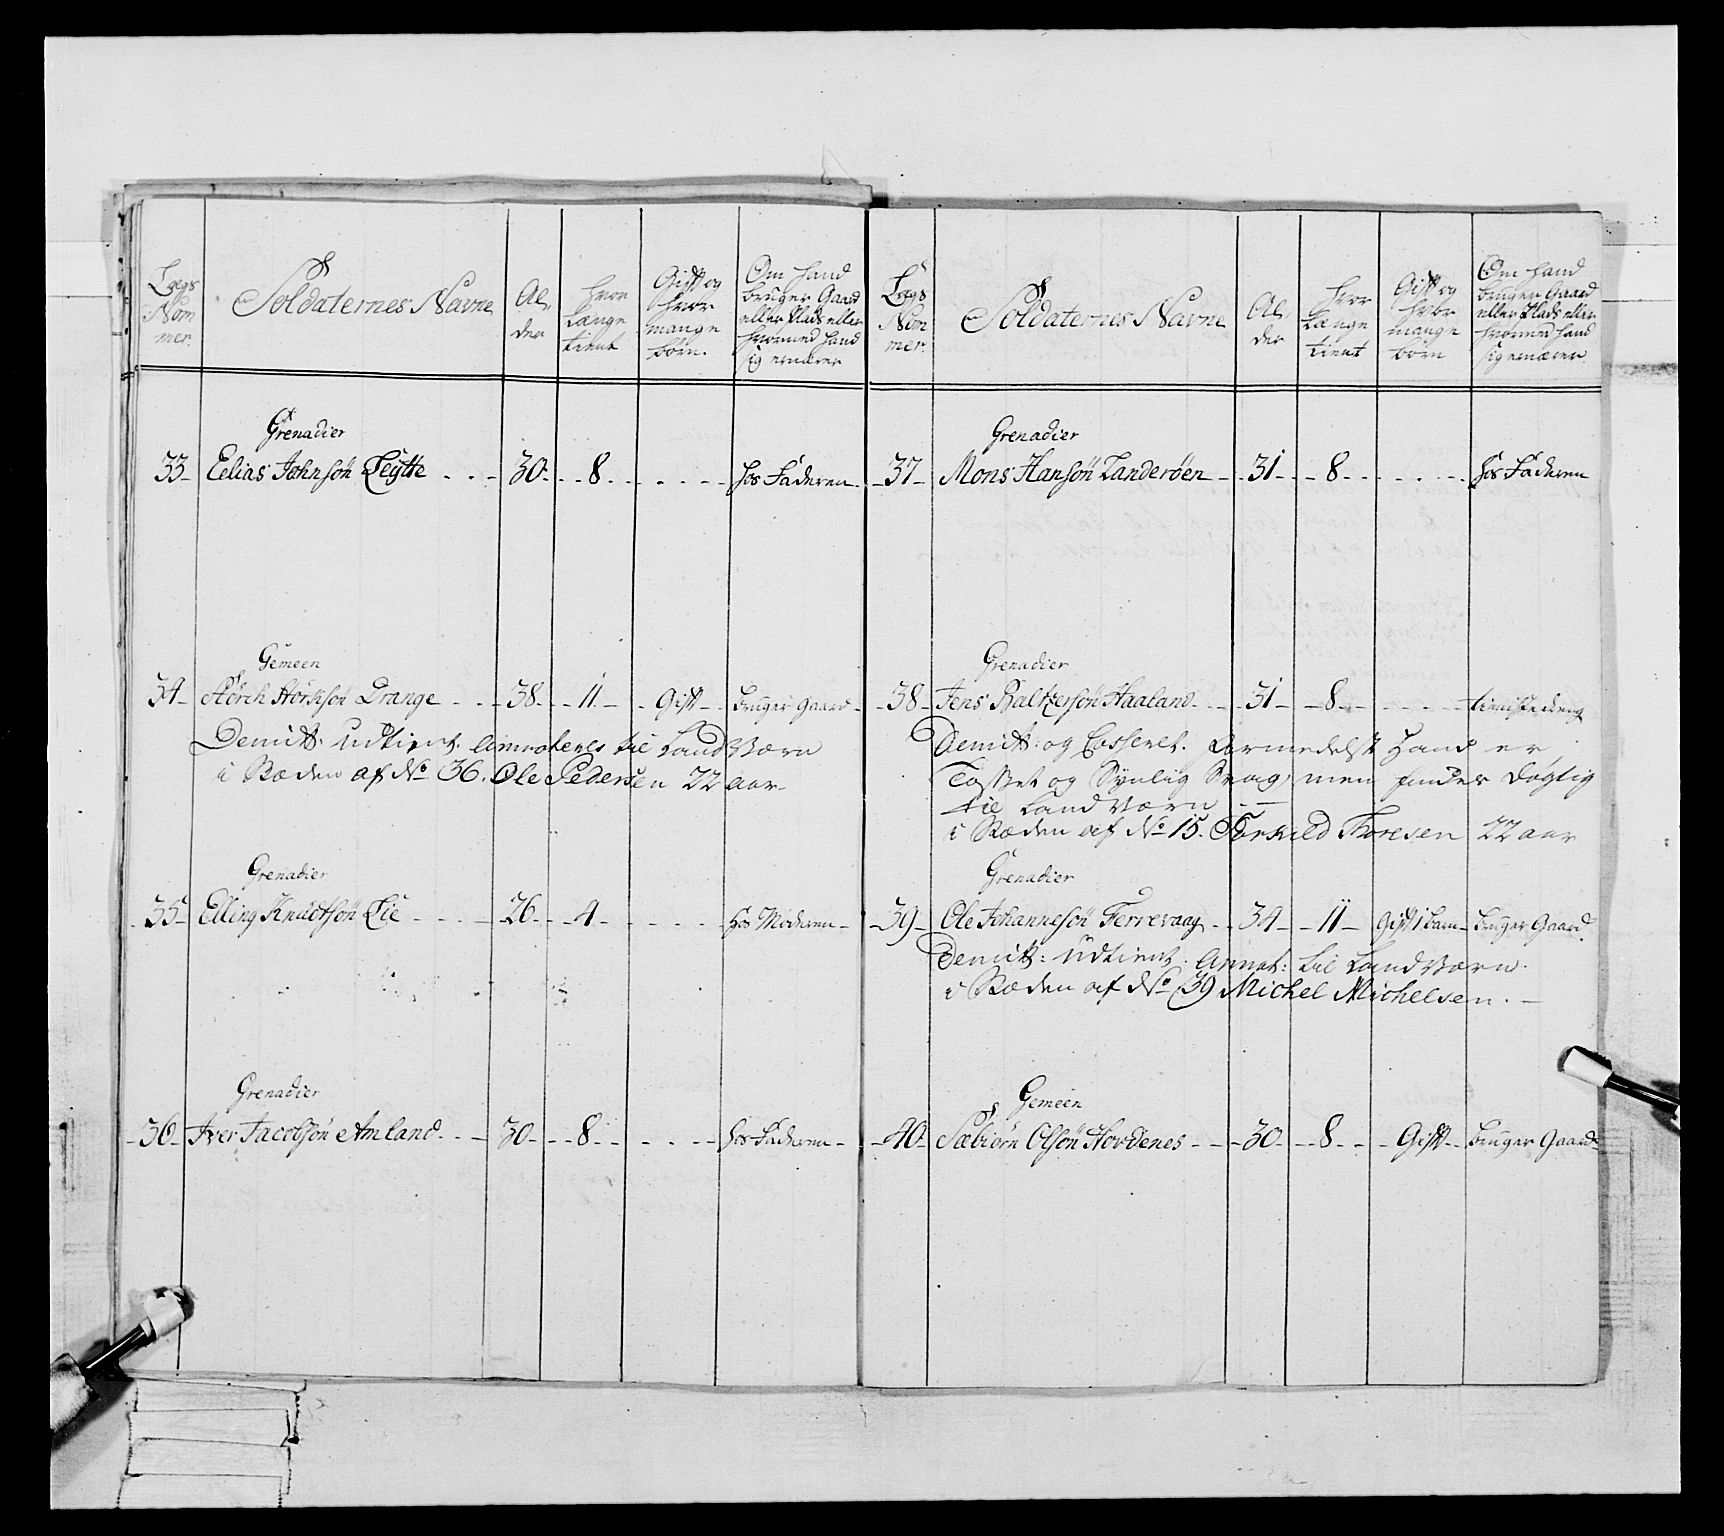 Lægs Nom mer.
Soldaternes Navne
Al, der
hvor Længe tient
Gift og hvor mange børn.
Om hand bruger Gaard eller Plads eller hvormed hand sig ernærer
Grenadier
33 Eelias Johnsøn Leÿtte 30 8 hos Faderen
Gemeen
34 Størck Størcksøn Drange 38 11 Gift bruger Gaard
Demitt: udtient. til LandVærn
i Stæden af No 36. Ole Pedersen 22 aar
Grenadier
35 Elling Knudtsøn Lie 26 4 hos Moderen
Grenadier
36 Iver Jacobsøn Amland 30 8 hos Faderen
Lægs Nom mer.
Soldaternes Navne
Al, der
hvor Længe tient
Gift og hvor mange børn
Om hand bruger Gaard eller Plads eller hvormed hand sig ernærer
Grenadier
37 Mons Hansøn Landerøen 31 8 hos Faderen
Grenadier
38 Jens Baltzersøn Haaland 31 8 tienistedreng
Demitt: og Casseret. formedelst Hand er
og Synlig Svag, men findes døgtig
til LandVærn
i Stæden af No 15. Torkild Thoresen 22 aar
Grenadier
39 Ole Johannesøn Ferrevaag 34 11 Gift 1 barn bruger Gaard.
Demitt: udtient: Annot: til LandVærn.
i Stæden af No 39 Michel Michelsen.
Gemeen
40 Sæbiørn Olsøn Hordenes 30 8 Gift bruger Gaard